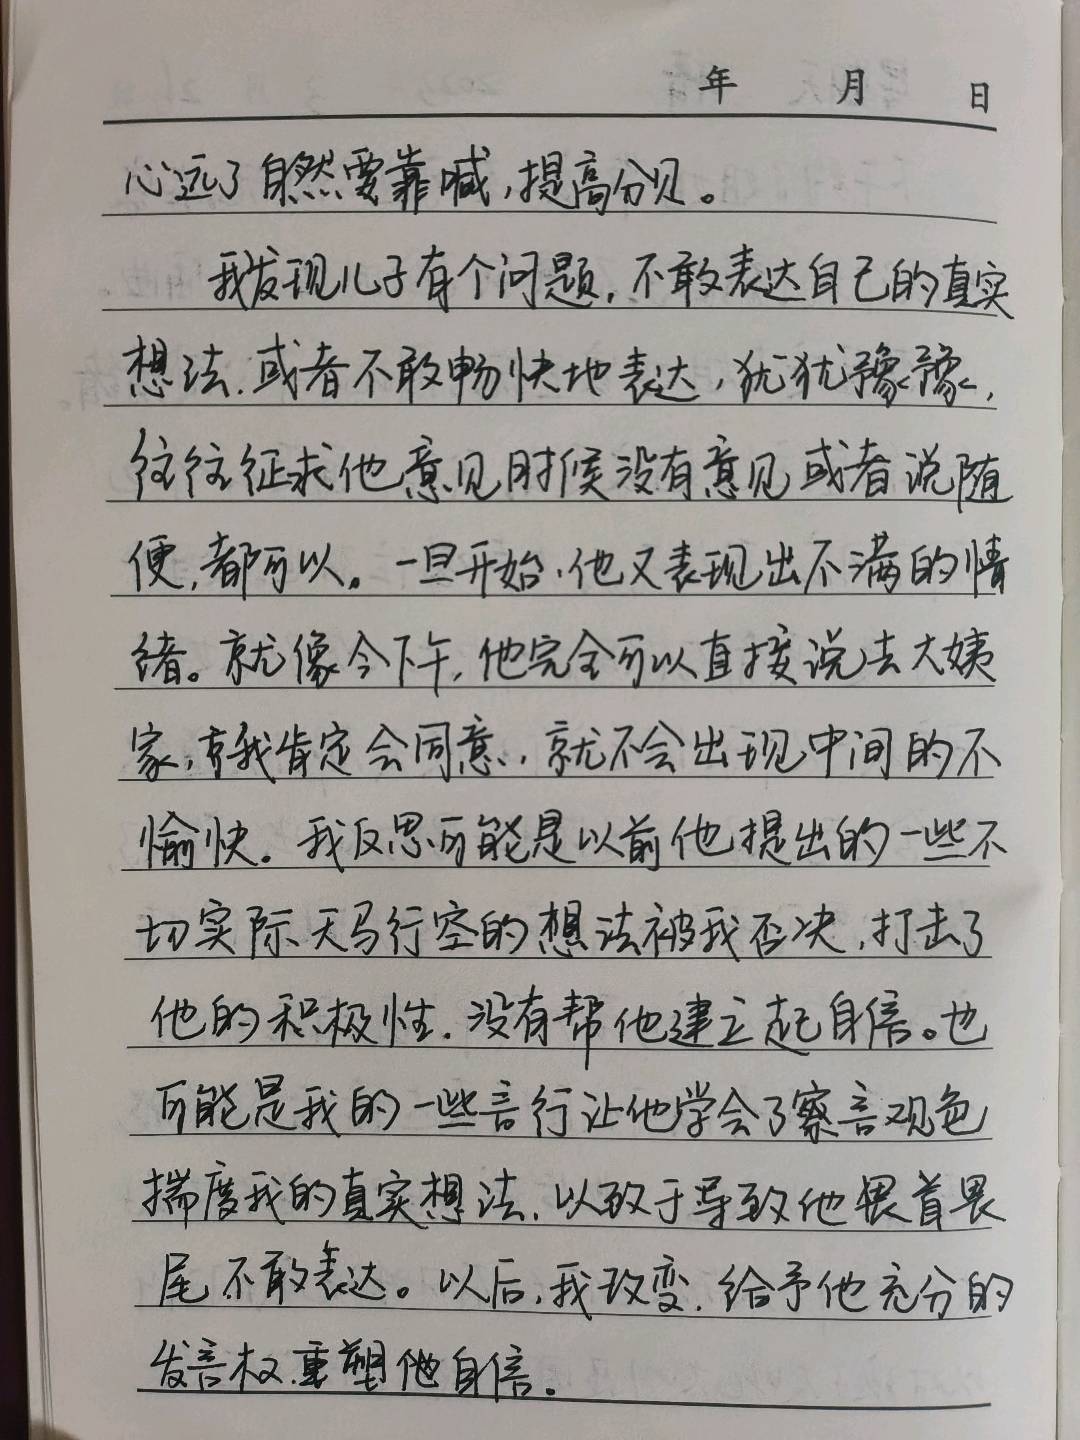 年 月 日
心远了自然要靠喊,提高分贝。
我发现儿子有个问题,不敢表达自己的真实
想法.或者不敢畅快地表达,犹犹豫豫,
往往征求他意见时候没有意见或者说随
便,都可以。一旦开始.他又表现出不满的情
绪。就像今下午,他完全可以直接说去大姨
家,我肯定会同意,就不会出现中间的不
愉快。我反思可能是以前他提出的一些不
切实际天马行空的想法被我否决,打击了
他的积极性.没有帮他建立起自信。也
可能是我的一些言行让他学会了察言观色
揣度我的真实想法.以致于导致他畏首畏
尾不敢表达。以后,我改变.给予他充分的
发言权重塑他自信。